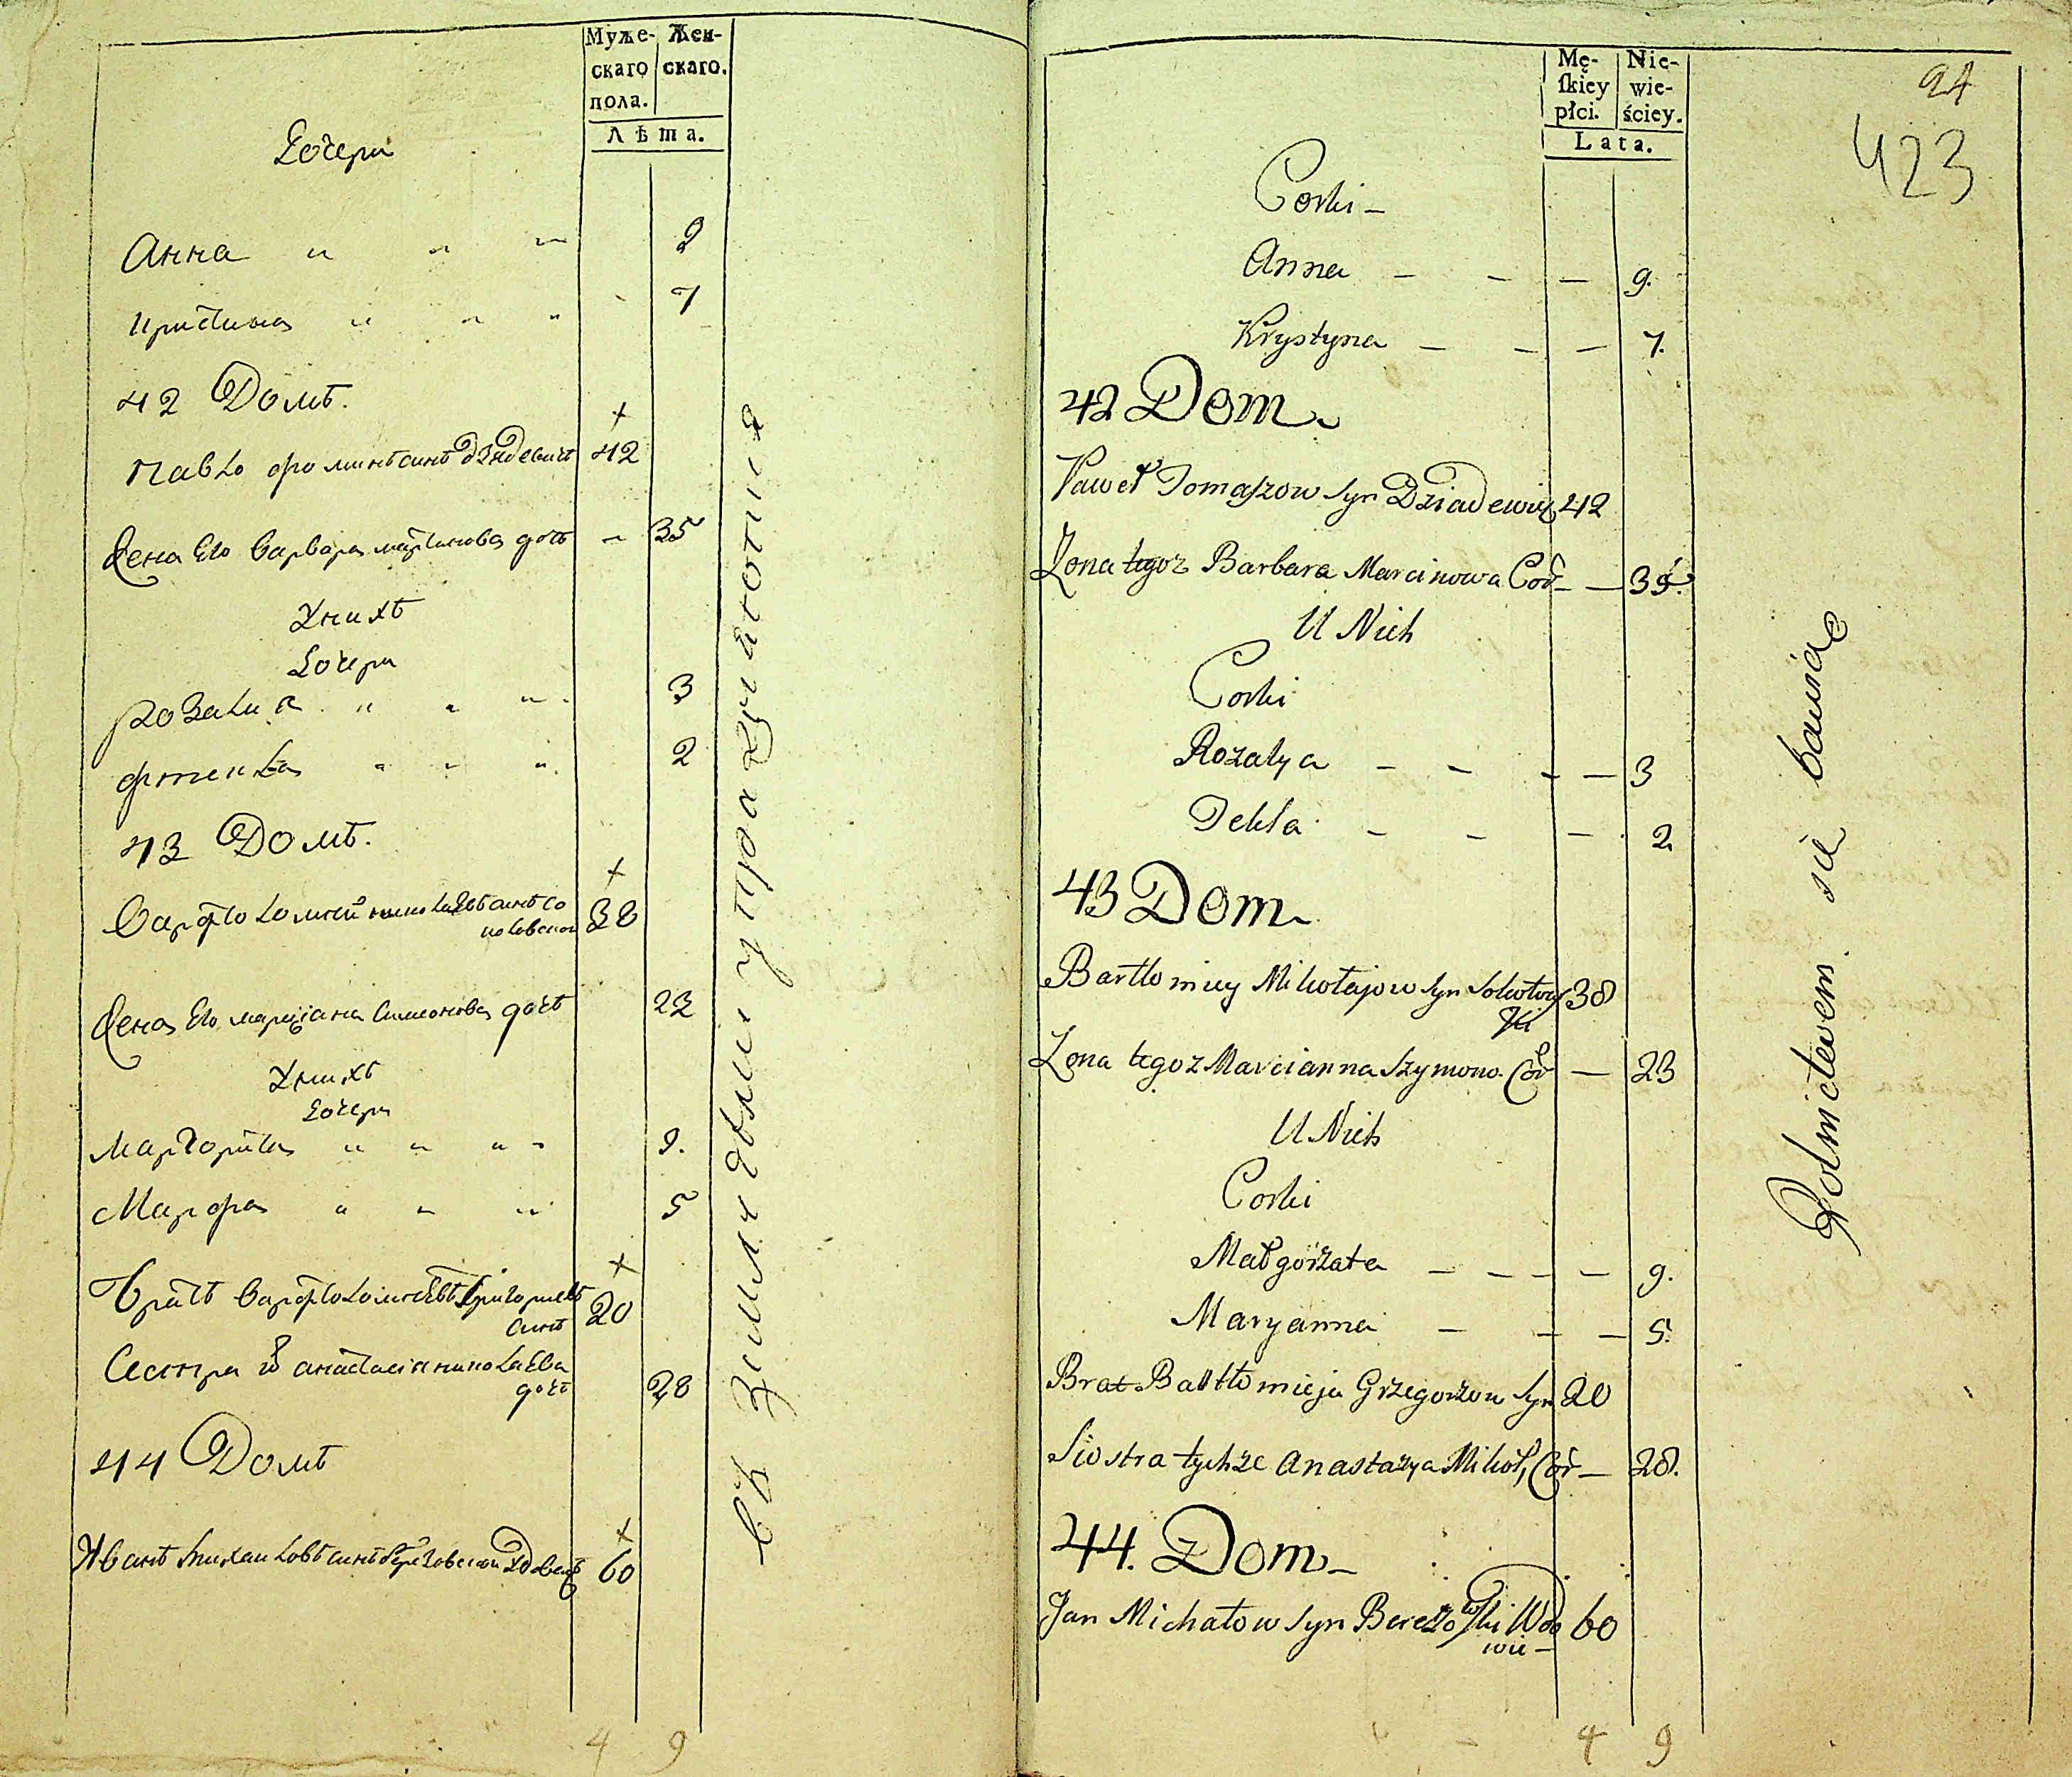 Муже- Жен-
скаго скаго.
пола.
Лѣта.
Дочери
Анна 9
Христина 7
42 Домъ.
Павло Фоминъ синъ Дзядевичъ 42
Жена Его варвара мартинова дочь 35
У нихъ
Дочери
Розалия 3
Фтекла 2
43 Домъ.
Варфоломей николаевъ синъ со
коловской 38
Жена Его марциана Симонова дочь 23
У нихъ
Дочери
Маргорита 9.
Марфа 5
братъ варфоломеевъ григориевъ
синъ 20
Сестра анастасия николаева
дочь 28
44 Домъ
Иванъ михаиловъ синъ березовской вдовецъ 60
4 9
въ земледелии упражняются
Mę- Nie-
ſkiey wie-
płci. ściey.
Lata.
94
423
Corki -
Anna - - - 9.
Krystyna - - - 7.
42 Dom
Paweł Tomaszow Syn Dziadewicz 42
Zona tegoz Barbara Marcinowa Cor - 35.
U Nich
Corki
Rozalya - - - - 3
Tekla - - - 2
43 Dom
Bartlomiey Mikołajow Syn Sokołow
ski 38
Zona tegoz Marcianna Szymono. Cor - 23
U Nich
Corki
Małgorzata - - - - 9.
Maryanna - - - 5.
Brat Bartłomieja Grzegorzow Syn 20
Siostra tychze Anastazya Mikoł, Cor - 28.
44. Dom -
Jan Michałow Syn Berezowski Wdo
wie - 60
4 9
Rolnictwem się bawią